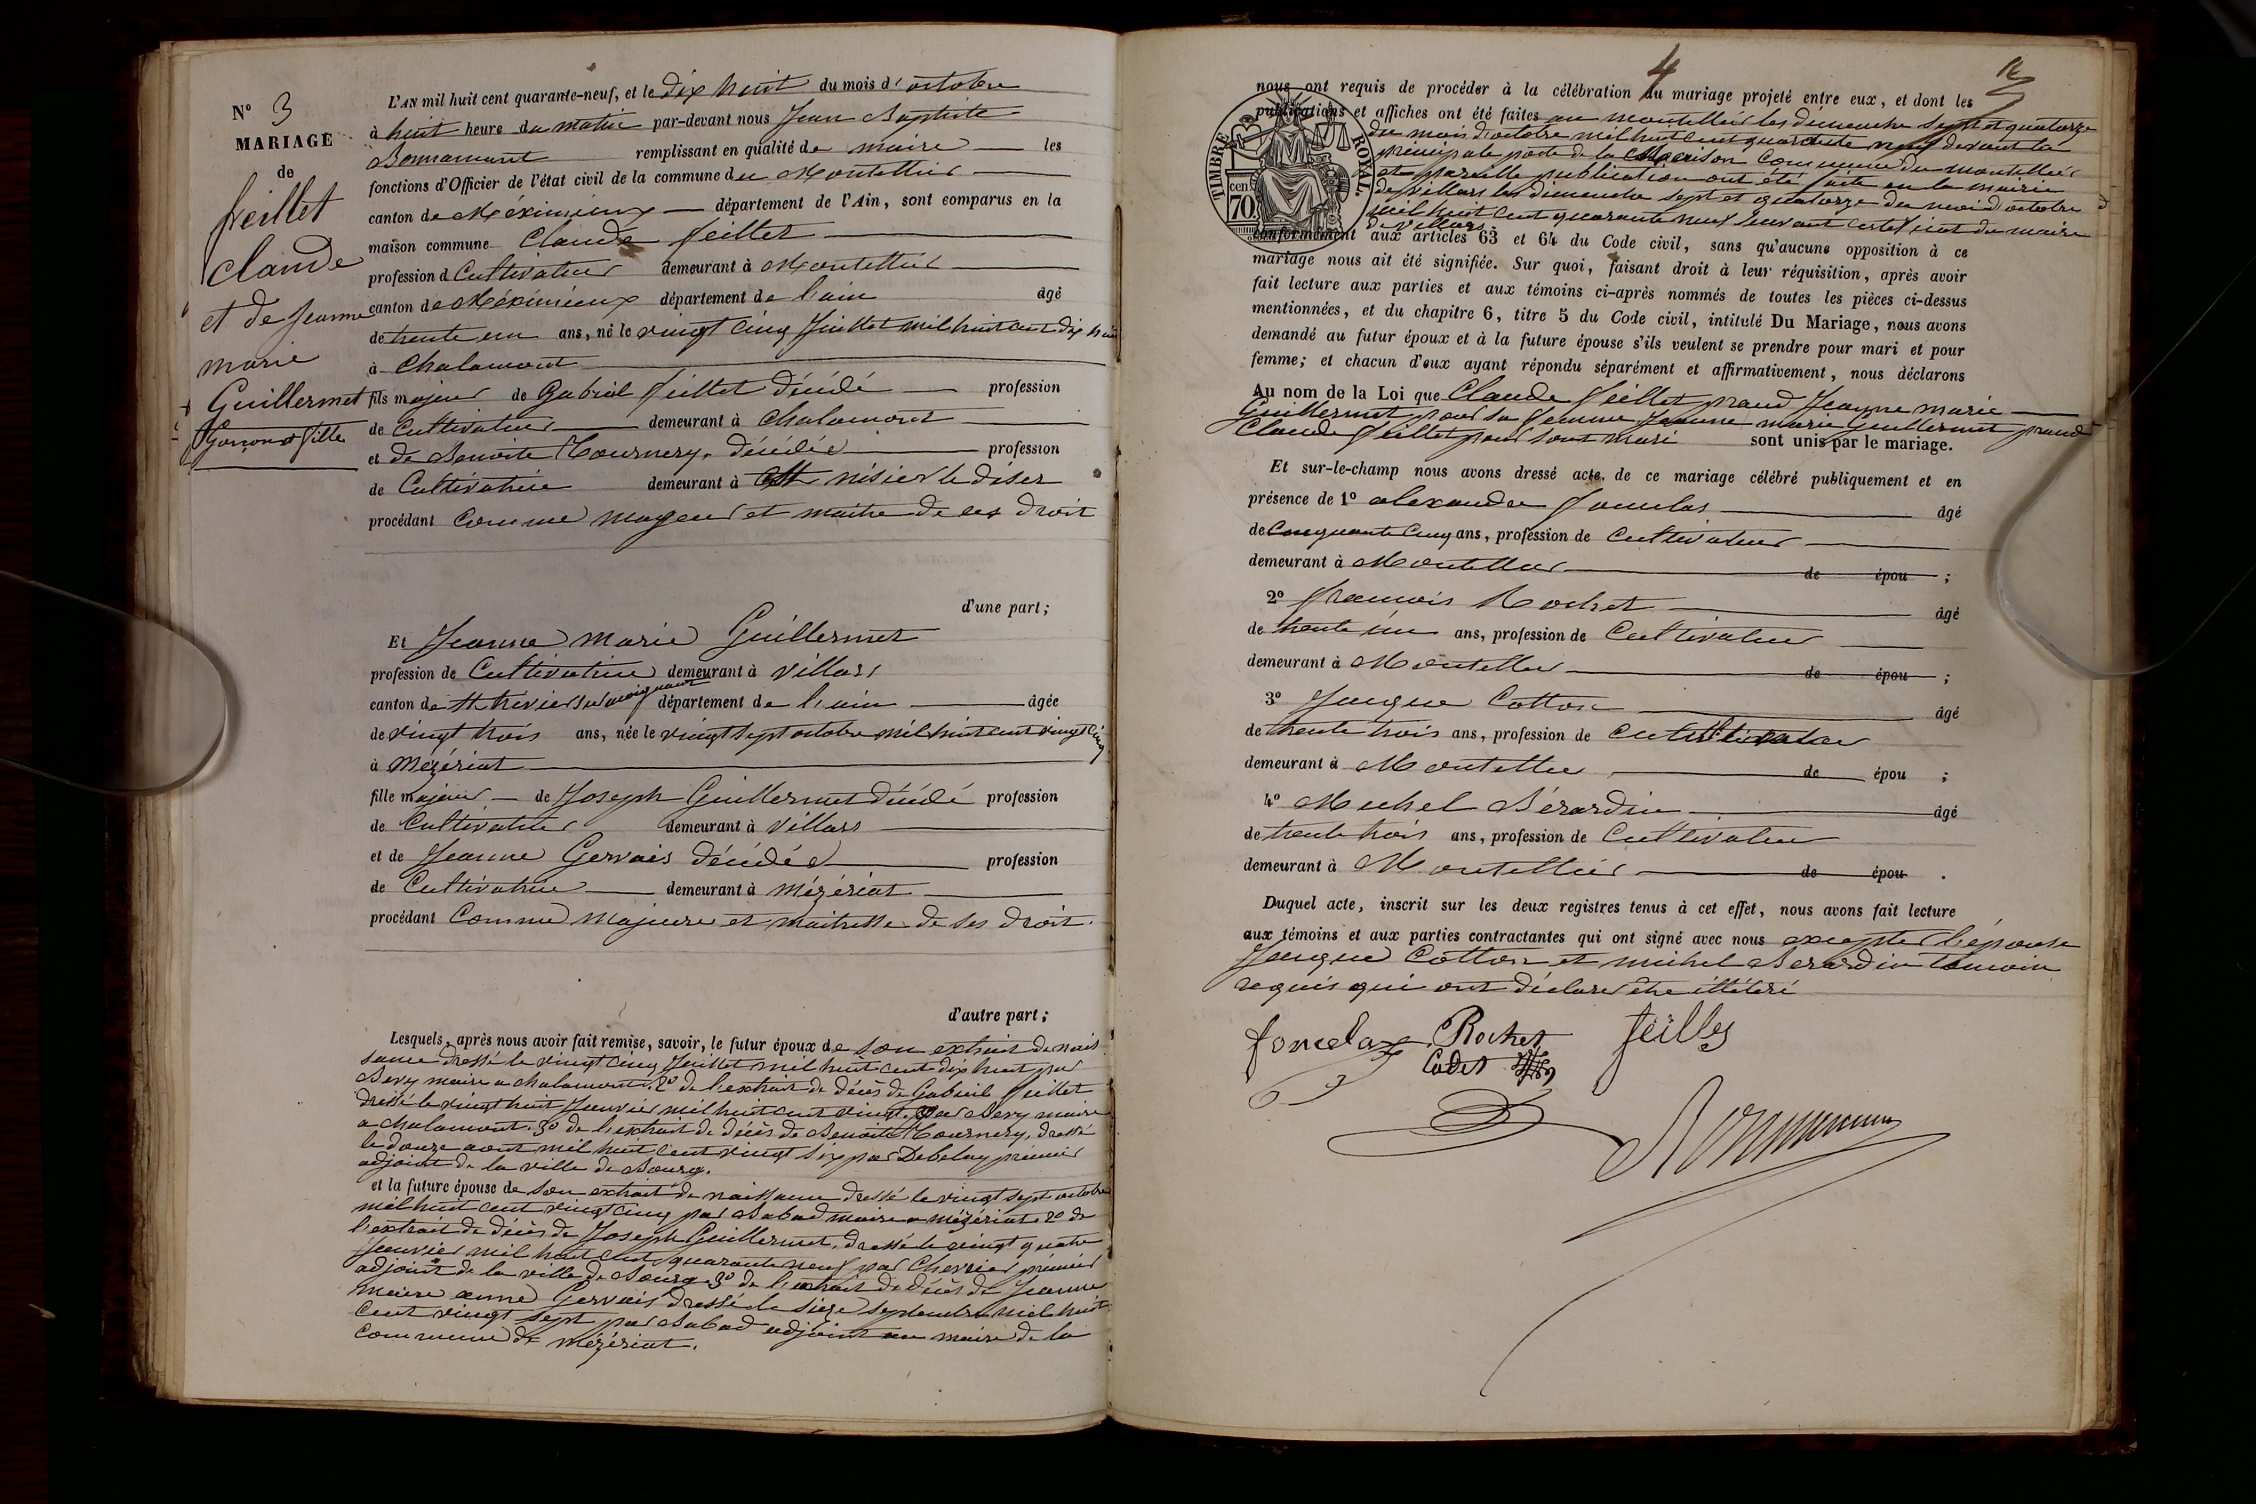 N° 3
MARIAGE
de
feillet
claude
et de jeanne
marie
Guillermet
Garçon et fille
L'AN mil huit cent quarante-neuf, et le dix huit du mois d'octobre
à huit heure du matin par-devant nous Jean Baptiste
Bonnamant remplissant en qualité de maire les
fonctions d'Officier de l'état civil de la commune de Montellier
canton de Méximieux département de l'Ain, sont comparus en la
maison commune Claude feillet
profession d Cultivateur demeurant à Montellier
canton de Méximieux département de l'ain âgé
de trente un ans, né le vingt cinq Juillet mil huit cent dix huit
à Chalamont
fils majeur de Gabriel feillet décédé profession
de Cultivateur demeurant à Chalamont
et de Benoite Tournery, décédée profession
de Cultivatrice demeurant à St nisier le diser
procédant comme mageur et maitre de ses droit
d'une part;
Et Jeanne marie Guillermet
profession de Cultivatrice demeurant à villars
canton de St trivier sur moignant département de l'ain âgée
de vingt trois ans, née le vingt sept octobre mil huit cent vingt cinq
à Mézériat
fille majeur de Joseph Guillermet décédé profession
de Cultivateur demeurant à villars
et de Jeanne Gervais décédée profession
de Cultivatrice demeurant à mézériat
procédant Comme Majeure et maitresse de ses droit.
d'autre part;
Lesquels, après nous avoir fait remise, savoir, le futur époux de son extrait de nais
sance dressé le vingt cinq Juillet mil huit cent dix huit par
Bevy maire a chalamont. 2° de l'extrait de décès de Gabriel feillet
dressé le vingt huit Janvier mil huit cent vingt, par Bevy maire
a chalamont. 3° de l'extrait de décès de Benoite Tournery, dressé
le douze aout mil huit cent vingt six par Debelay prémier
adjoint de la ville de Bourg.
et la future épouse de son extrait de naissance dressé le vingt sept octobre
mil huit cent vingt cinq par Babad maire a mézériat. 2° de
l'extrait de décès de Joseph Guillermet, dressé le vingt quatre
Janvier mil huit cent quarante neuf par Chevrier prémier
adjoint de la ville de Bourg. 3° de l'extrait de décès de Jeanne
marie anne Gervais dressé le sieze septembre mil huit
cent vingt sept par Babad adjoint au maire de la
commune de mézériat.
4
TIMBRE ROYAL.
70 cen
nous ont requis de procéder à la célébration du mariage projeté entre eux, et dont les
publications et affiches ont été faites au montellier les dimenche sept et quatorze
du mois d'octobre mil huit cent quarente neuf devant la
principale porte de la maison Commune du montellier
et pareille publication ont été faite en la mairie
de villars les dimenche sept et quatorze du mois d'octobre
mil huit cent quarante neuf suivant certificat du maire
de villars
conformément aux articles 63 et 64 du Code civil, sans qu'aucune opposition à ce
mariage nous ait été signifiée. Sur quoi, faisant droit à leur réquisition, après avoir
fait lecture aux parties et aux témoins ci-après nommés de toutes les pièces ci-dessus
mentionnées, et du chapitre 6, titre 5 du Code civil, intitulé Du Mariage, nous avons
demandé au futur époux et à la future épouse s'ils veulent se prendre pour mari et pour
femme; et chacun d'eux ayant répondu séparément et affirmativement, nous déclarons
Au nom de la Loi que Claude feillet prand Jeanne marie
Guillermet pour sa femme Jeanne marie Guillermet prand
Claude feillet pour sont mari sont unis par le mariage.
Et sur-le-champ nous avons dressé acte, de ce mariage célébré publiquement et en
présence de 1° alexandre foncelas âgé
de Cinquante Cinq ans, profession de Cultivateur
demeurant à Montellier de épou ;
2° francois Rochet âgé
de trente un ans, profession de Cultivateur
demeurant à Montellier de épou ;
3° Jacque Cotton âgé
de trente trois ans, profession de Cultivateur
demeurant à Montellier de épou ;
4° Michel Bérardin âgé
de trente trois ans, profession de Cultivateur
demeurant à Montellier de épou .
Duquel acte, inscrit sur les deux registres tenus à cet effet, nous avons fait lecture
aux témoins et aux parties contractantes qui ont signé avec nous excepter l'épouse
Jacque Cotton et michel Berardin témoin
requis qui ont déclarer être illétéré
foncelaz Rochet feilles
Cadet
Bonnamant